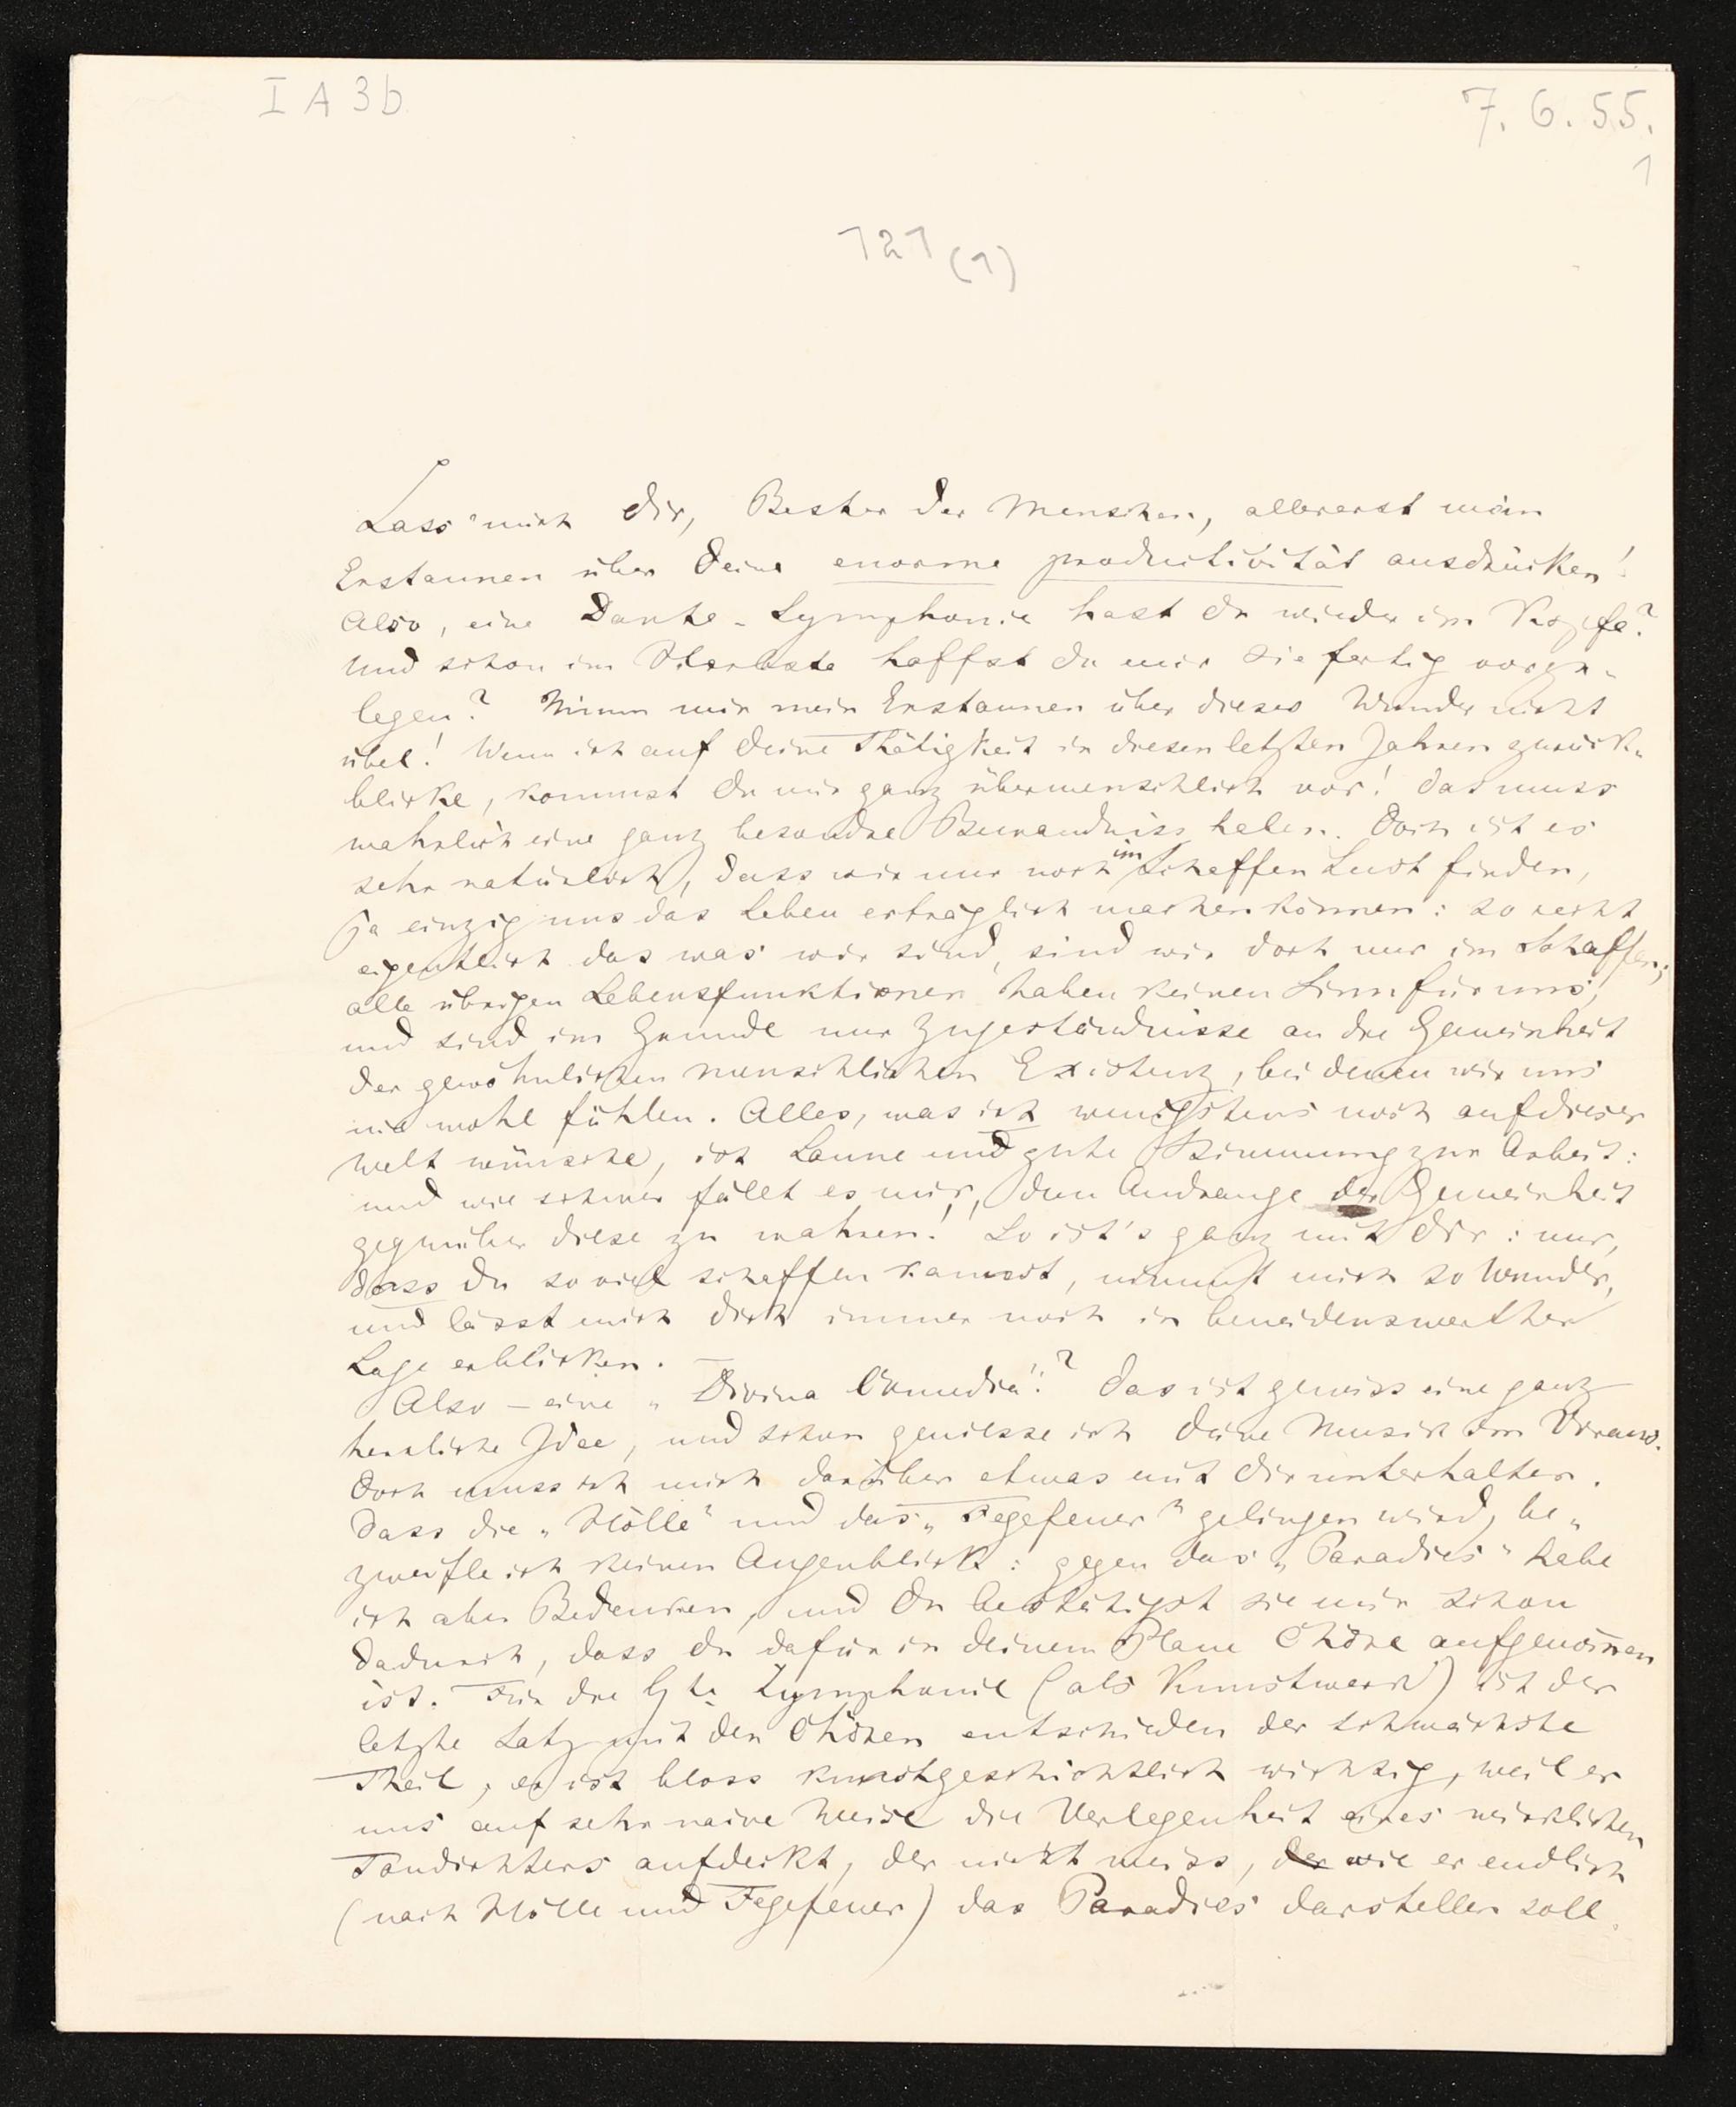 I A 3b
7. 6. 55.
1
121 (1)
Lass' mich Dir, Bester der Menschen, allererst mein
Erstaunen über Deine enorme productivität ausdrücken!
Also, eine Dante-Symphonie hast Du wieder im Kopfe?
Und schon im Herbste hoffst Du mir sie fertig vorzu-
legen? Nimm mir mein Erstaunen über dieses Wunder nicht
übel! Wenn ich auf Deine Thätigkeit in diesen letzten Jahren zurück-
blicke, kommst Du mir ganz übermenschlich vor! Das muss
wahrlich eine ganz besondre Bewandniss haben. Doch ist es
sehr natürlich, dass wir nur noch im Schaffen Lust finden,
ja einzig uns das Leben erträglich machen können: so recht
eigentlich das was wir sind, sind wir doch nur im Schaffen;
alle übrigen Lebensfunktionen haben keinen Sinn für uns,
und sind im Grunde nur Zugeständnisse an die Gemeinheit
der gewöhnlichen menschlichen Existenz, bei denen wir uns
nie wohl fühlen. Alles, was ich wenigstens noch auf dieser
Welt wünsche, ist Laune und gute Stimmung zur Arbeit:
und wie schwer fällt es mir, dem Andrange der Gemeinheit
gegenüber diese zu wahren! So ist's ganz mit Dir: nur,
dass Du so viel schaffen kannst, nimmt mich so Wunder,
und lässt mich Dich immer noch in beneidenswerther
Lage erblicken.
Also – eine „Divina Comedia"? Das ist gewiss eine ganz
herrliche Idee, und schon geniesse ich Deine Musik im Voraus.
Doch muss ich mich darüber etwas mit Dir unterhalten.
Dass die „Hölle" und das „Fegefeuer" gelingen wird, be-
zweifle ich keinen Augenblick: gegen das „Paradies" habe
ich aber Bedenken, und Du bestätigst sie mir schon
dadurch, dass Du dafür in Deinem Plane Chöre aufgenom̄en
ist. Für die 9te Symphonie (als Kunstwerk) ist der
letzte Satz mit den Chören entschieden der schwächste
Theil, er ist bloss kunstgeschichtlich wichtig, weil er
uns auf sehr naive Weise die Verlegenheit eines wirklichen
Tondichters aufdeckt, der nicht weiss, der wie er endlich
(nach Hölle und Fegefeuer) das Paradies darstellen soll.